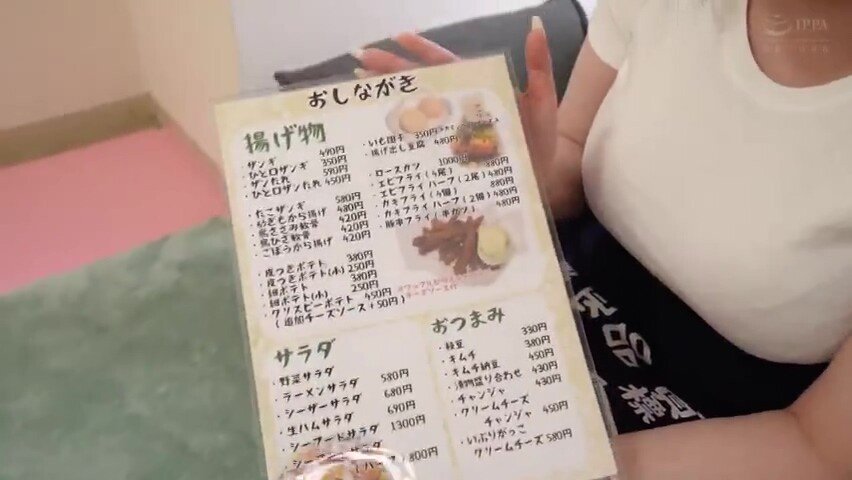 おしながき
揚げ物
・ザンギ 490円
・ひと口ザンギ 350円
・ザンたれ 590円
・ひと口ザンたれ 450円
・たこザンギ 580円
から揚げ 480円
・鳥ささみ軟骨 420円
・鳥ひざ軟骨 420円
・ごぼうから揚げ 420円
・皮つきポテト 380円
・皮つきポテト(小) 250円
・細ポテト 380円
・細ポテト(小) 250円
・クリスピーポテト 450円
(追加チーズソース+50円)
・いも団子 350円
・揚げ出し豆腐 480円
・ロースカツ 1000円
・エビフライ(4尾) 880円
・エビフライ ハーフ(2尾) 480円
・カキフライ(4個) 880円
・カキフライ ハーフ(2個) 480円
・豚串フライ(串カツ) 480円
チーズソース付
サラダ
・野菜サラダ 580円
・ラーメンサラダ 680円
・シーザーサラダ 690円
・生ハムサラダ 1300円
・シーフードサラダ
800円
おつまみ
・枝豆 330円
・キムチ 380円
・キムチ納豆 450円
・漬物盛り合わせ 430円
・チャンジャ 430円
・クリームチーズ
チャンジャ 450円
・いぶりがっこ
クリームチーズ 580円
品
IPPA